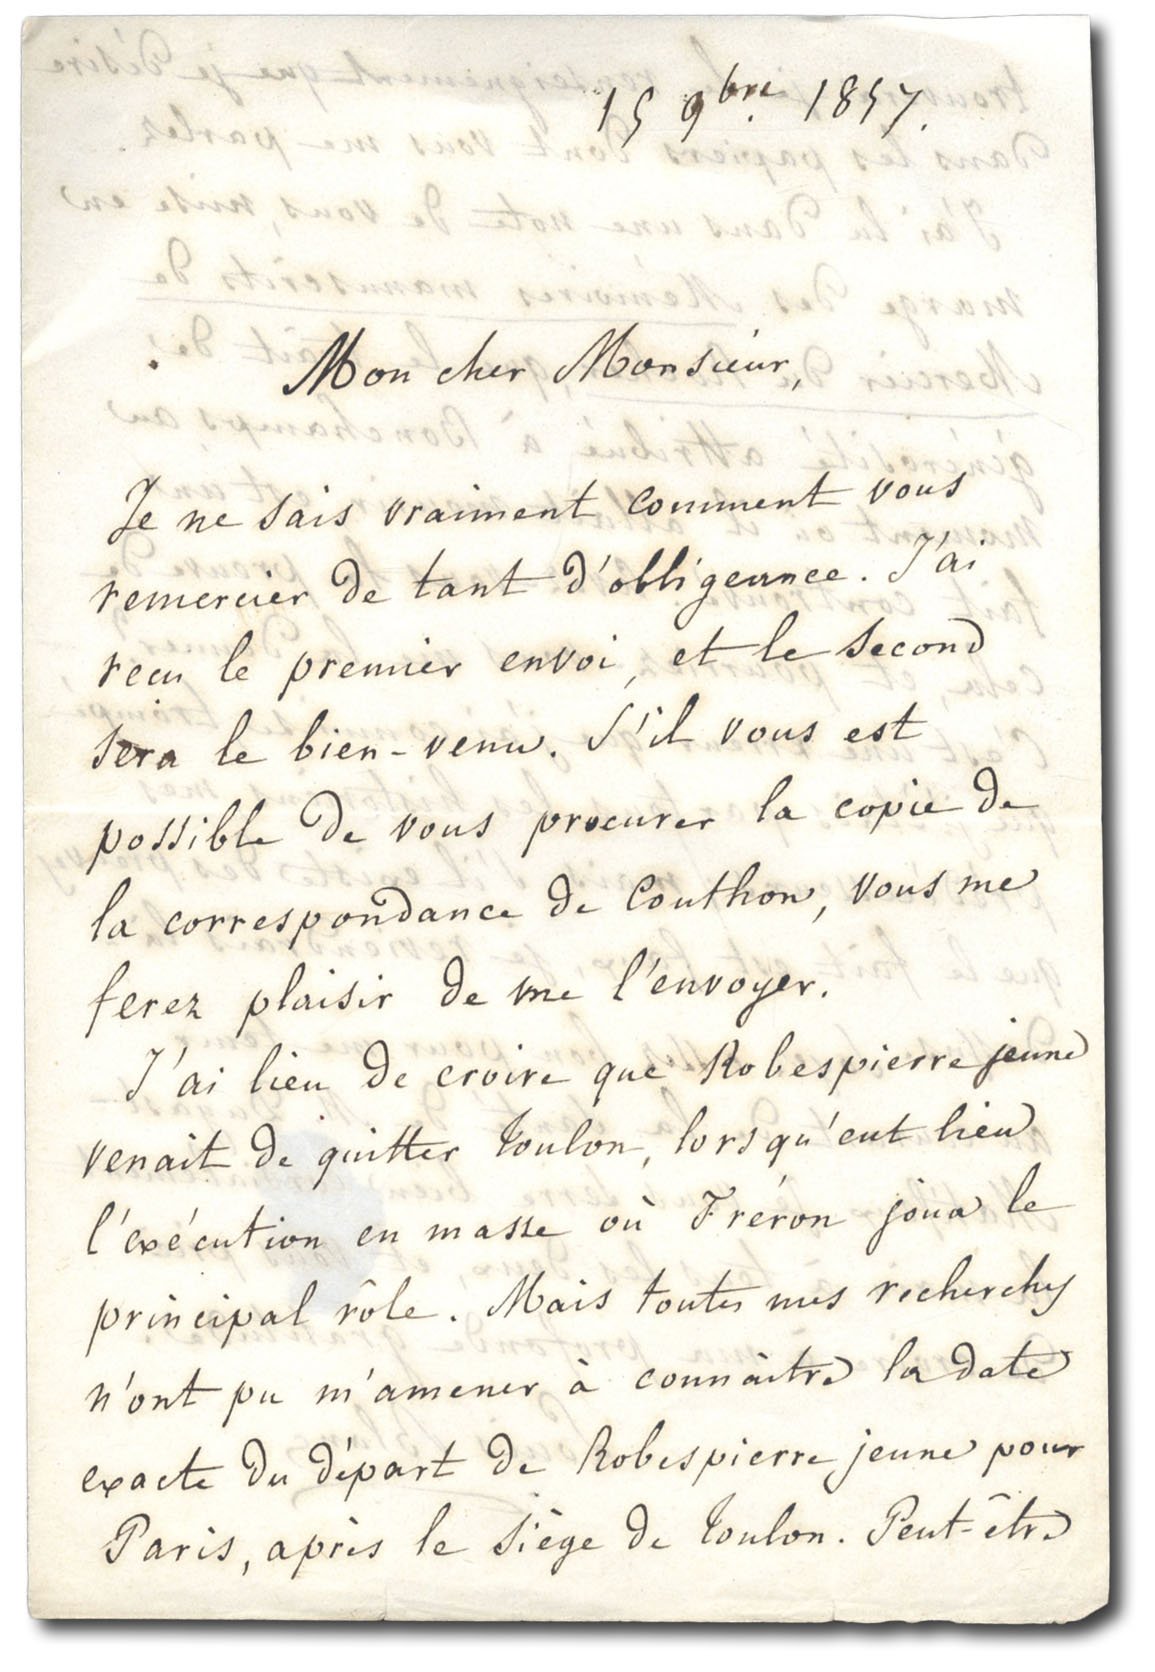 15 9bre. 1857.
Mon cher Monsieur,
Je ne sais vraiment comment vous
remercier de tant d'obligeance. J'ai
recu le premier envoi, et le second
sera le bien-venu. S'il vous est
possible de vous procurer la copie de
la correspondance de Couthon, vous me
ferez plaisir de me l'envoyer.
J'ai lieu de croire que Robespierre jeune
venait de quitter Toulon, lorsqu'eut lieu
l'exécution en masse où Fréron joua le
principal rôle. Mais toutes mes recherches
n'ont pu m'amener à connaître la date
exacte du départ de Robespierre jeune pour
Paris, après le siège de Toulon. Peut-être